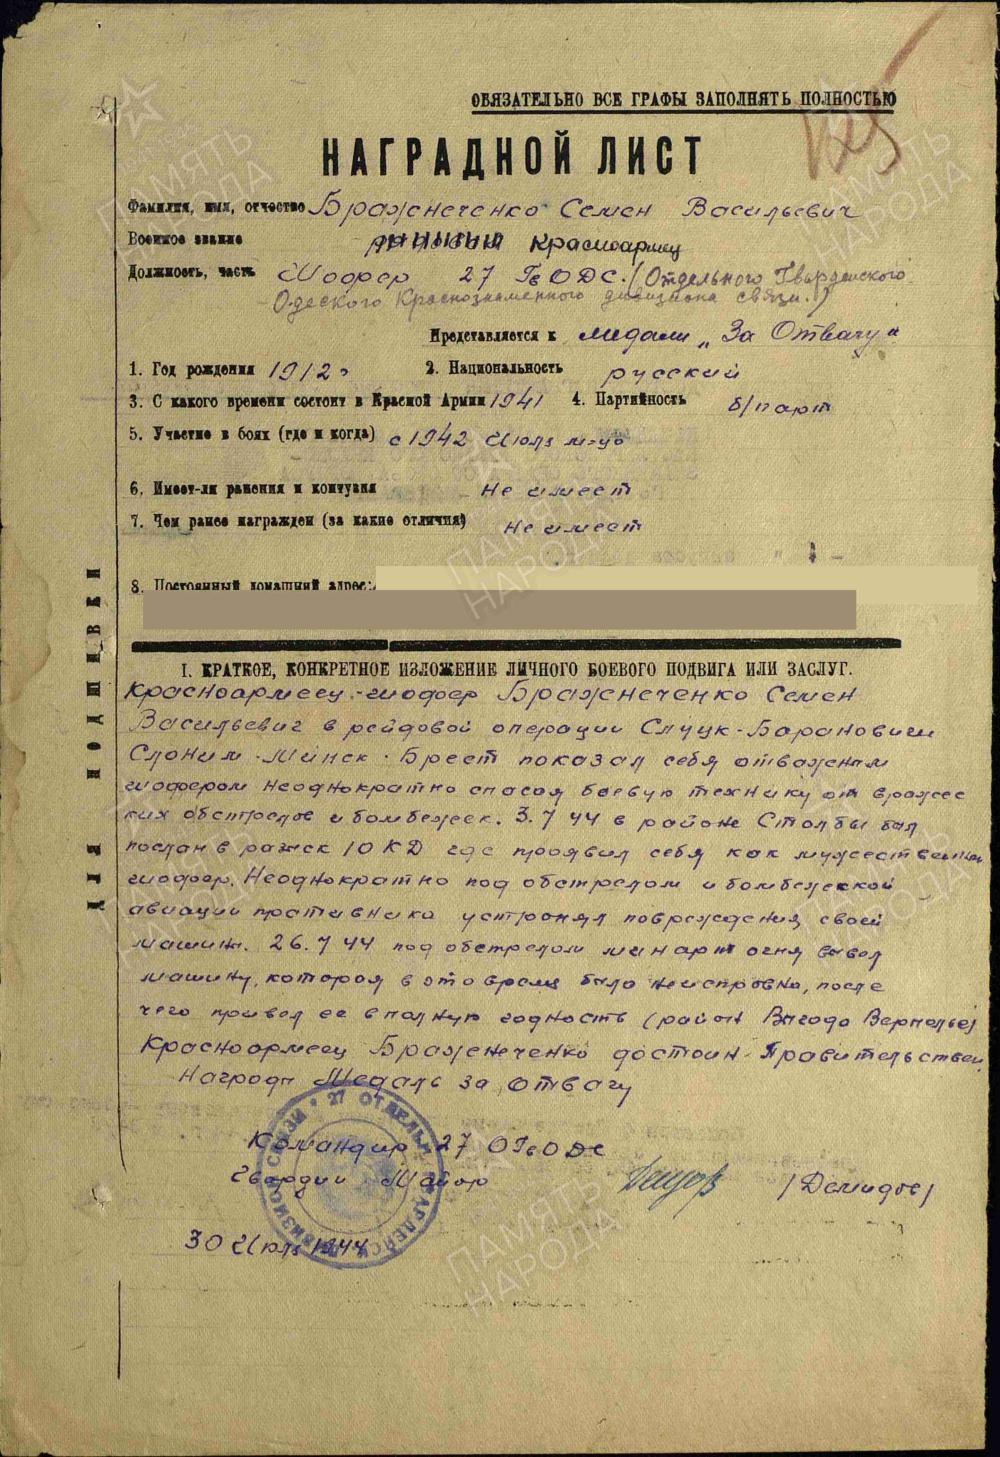 ОБЯЗАТЕЛЬНО ВСЕ ГРАФЫ ЗАПОЛНЯТЬ ПОЛНОСТЬЮ
НАГРАДНОЙ ЛИСТ
Фамилия, имя, отчество Браженеченко Семен Васильевич
Военное звание Красноармец
Должность, часть Шофер 27 ГвОДС. (Отдельного Гвардейского
Одеского Краснознаменного дивизиона связи.)
Представляется к медали „За Отвагу"
1. Год рождения 1912 г 2. Национальность русский
3. С какого времени состоит в Красной Армии 1941 4. Партийность б/парт
5. Участие в боях (где и когда) с 1942 Июля м-ца
6. Имеет-ли ранения и контузия Не имеет
7. Чем ранее награжден (за какие отличия) Не имеет
8. Постоянный домашний адрес:
ДЛЯ ПОДШИВКИ
I. КРАТКОЕ, КОНКРЕТНОЕ ИЗЛОЖЕНИЕ ЛИЧНОГО БОЕВОГО ПОДВИГА ИЛИ ЗАСЛУГ.
Красноармеец-шофер Браженеченко Семен
Васильевич в рейдовой операции Слуцк-Барановичи
Слоним-Минск-Брест показал себя отважным
шофером неоднократно спасая боевую технику от вражес
ких обстрелов и бомбежек. 3.7.44 в районе Столбы был
послан в розиск 10 КД где проявил себя как мужественный
шофер. Неоднократно под обстрелом и бомбежкой
авиации противника устронял повреждения своей
машины. 26.7.44 под обстрелом минарт огня вывел
машину, которая в это время была неисправна, после
чего привел ее в полную годность (район Выгода Верполье)
Красноармеец Браженеченко достоин Правительствен
Награды Медаль за отвагу
Командир 27 ОГвОДС
Гвардии Майор /Демидов/
30 Июля 1944
27 ОТДЕЛЬН ГВАРДЕЙСК ДИВИЗИОН СВЯЗИ
ПАМЯТЬ НАРОДА